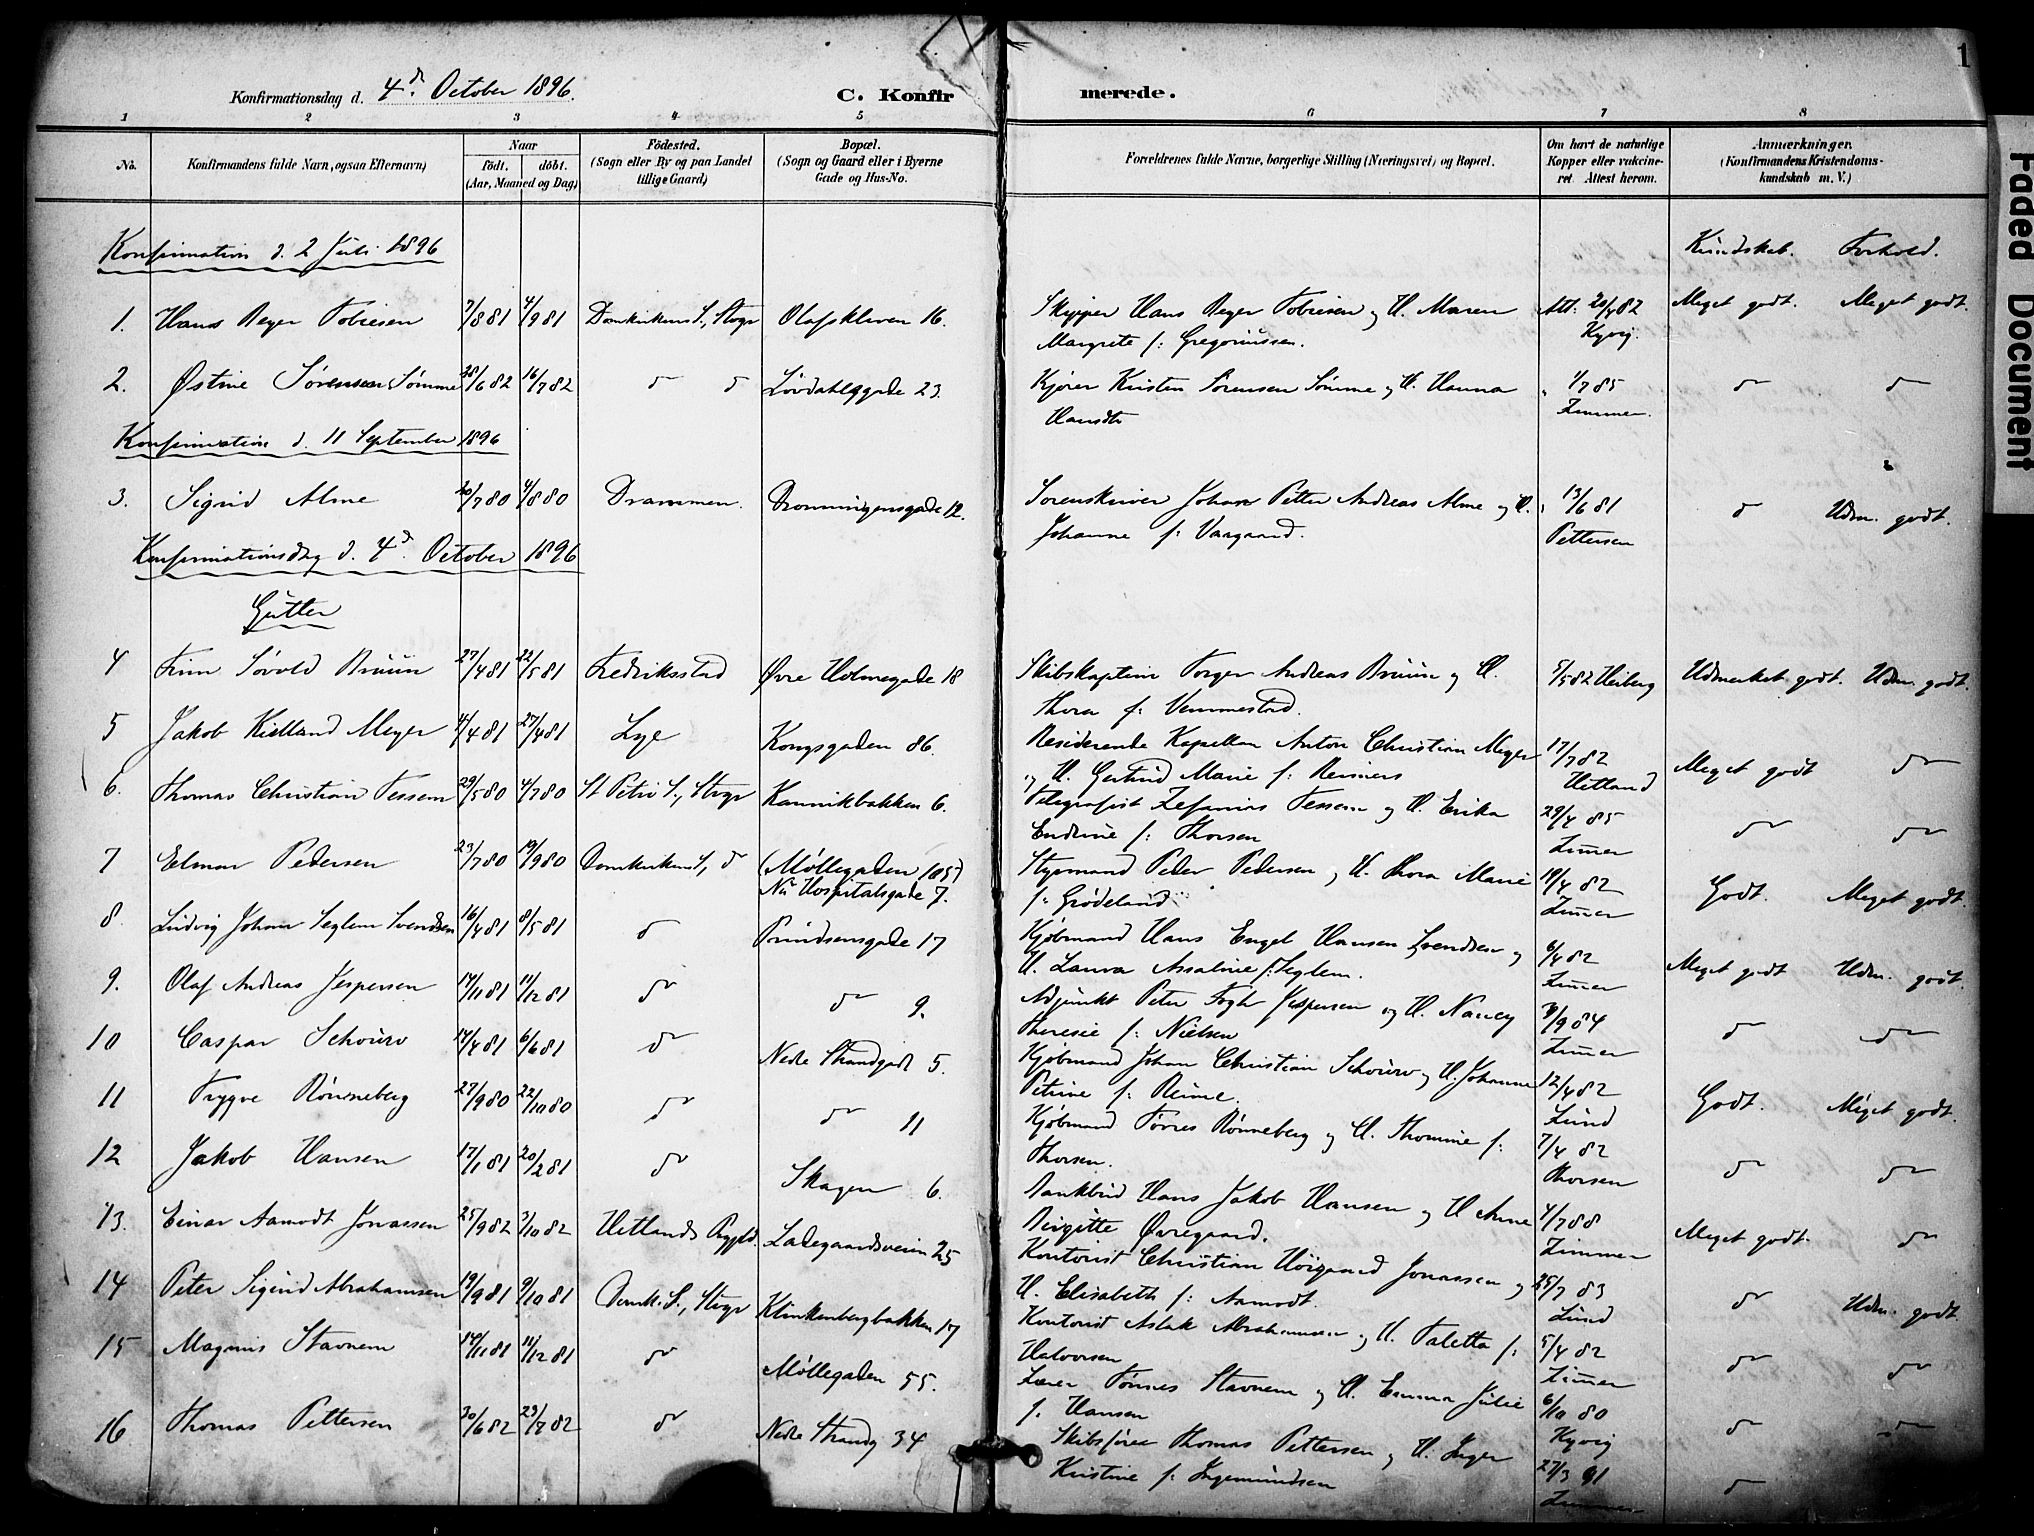 Konfirmationsdag d. 4d. October 1896.
C. Konfirmerede.
1
1 2 3 4 5 6 7 8
No.
Konfirmandens fulde Navn, ogsaa Efternavn)
Naar
födt. döbt.
(Aar, Maaned og Dag)
Födested.
(Sogn eller By og paa Landet
tillige Gaard)
Bopæl.
(Sogn og Gaard eller i Byerne
Gade og Hus-No.
Forældrenes fulde Navne, borgerlige Stilling (Næringsvei) og Bopæl.
Om havt de naturlige
Kopper eller vakcine-
ret Attest herom.
Anmærkninger.
(Konfirmandens Kristendoms-
kundskab m. V.)
Faded Document
Konfirmation d. 2 Juli 1896
Kundskab. Forhold.
1. Hans Beyer Tobiesen 7/8 81 4/9 81 Domkirkens S., Stvgr Olafskleven 16. Skipper Hans Beyer Tobiesen og H. Maren Att: 20/4 82 Meget godt. Meget godt.
Margrete f: Gregoriussen. Kyvig.
2. Østine Sørensen Sømme 28/6 82 16/7 82 do do Løvdahlsgade 23. Kjører Kristen Sørensen Sømme og H. Hanna " 1/7 85 do do
Zimmer.
Konfirmation d. 11 September 1896
3. Sigrid Alme 20/7 80 4/8 80 Drammen. Dronningensgade 12. Sorenskriver Johan Petter Andreas Alme og H. " 13/6 81 do Udm. godt.
Johanne f: Vaagaard. Pettersen
Konfirmationsdag d. 4d. October 1896
Gutter
4 Finn Sørold Bruun 27/4 81 22/5 81 Fredriksstad Øvre Holmegade 18 Skibskaptein Torger Andreas Bruun og H. 5/5 82 Heiberg Udmerket godt. Udm. godt.
Thora f: Vemmestad.
5 Jakob Kielland Meyer 4/4 81 27/4 81 Lye Kongsgaden 86. Residerende Kapellan Anton Christian Meyer 17/7 82 Meget godt do
og H. Gertrud Marie f: Reimers Hetland
6. Thomas Christian Tessem 29/5 80 4/7 80 St Petri S., Stvgr Kannikbakken 6. Telegrafist Zefanias Tessem og H. Erika 29/4 85 do do
Endrine f: Thorsen Zimer
7 Eelmar Pedersen 23/7 80 19/9 80 Domkirkens S., do (Møllegaden 105) Styrmand Peder Pedersen og H. Thora Marie 18/4 82 Godt. Meget godt.
Nu Hospitalsgade 7. f: Grødeland Zimer
8. Ludvig Johan Seglem Svendsen 16/4 81 8/5 81 do Prindsensgade 17 Kjøbmand Hans Engel Hansen Svendsen og 6/4 82 Meget godt Udm. godt.
H. Laura Assaline f: Seglem. Zimer
9. Olaf Andreas Jespersen 14/11 81 11/12 81 do do 9. Adjunkt Peter Fogh Jespersen og H. Nancy 8/9 84 do do
Theresie f: Nielsen Zimer
10 Caspar Schouw 14/4 81 6/6 81 do Nedre Strandgade 5. Kjøbmand Johan Christian Schouw og H. Johanne 12/4 82 Godt. Meget godt.
Petrine f: Reime. Lund
11 Trygve Rønneberg 27/9 80 22/10 80 do do 11 Kjøbmand Tørres Rønneberg og H. Thomine f: 7/4 82 do do
Thorsen. Thorsen
12 Jakob Hansen 17/1 81 20/2 81 do Skagen 6. Bankbud Hans Jakob Hansen og H Anne 4/7 88 Meget godt. do
Birgitte Øvregaard. Zimmer
13. Einar Aamodt Jonassen 25/9 82 3/10 82 Hetlands Prgjld. Ladegaardsveien 25 Kontorist Christian Høigaard Jonassen og 25/7 83 do Udm. godt.
H. Elisabeth f: Aamodt. Lund
14 Peter Sigurd Abrahamsen 19/9 81 9/10 81 Domk. S., Stvgr Klinkenbergbakken 17 Kontorist Aslak Abrahamsen og H. Taletta f: 5/4 82 do do
Halvorsen Zimer
15 Magnus Stavnem 14/11 81 11/12 81 do Møllegaden 55. Lærer Tønnes Stavnem og H. Emma Julie 6/10 80 do do
f. Hansen Kyvig
16 Thomas Pettersen 30/6 82 23/7 82 do Nedre Strandg 34 Skibsfører Thomas Pettersen og H. Inger 27/3 91 do
Kristine f: Ingemundsen Zimmer